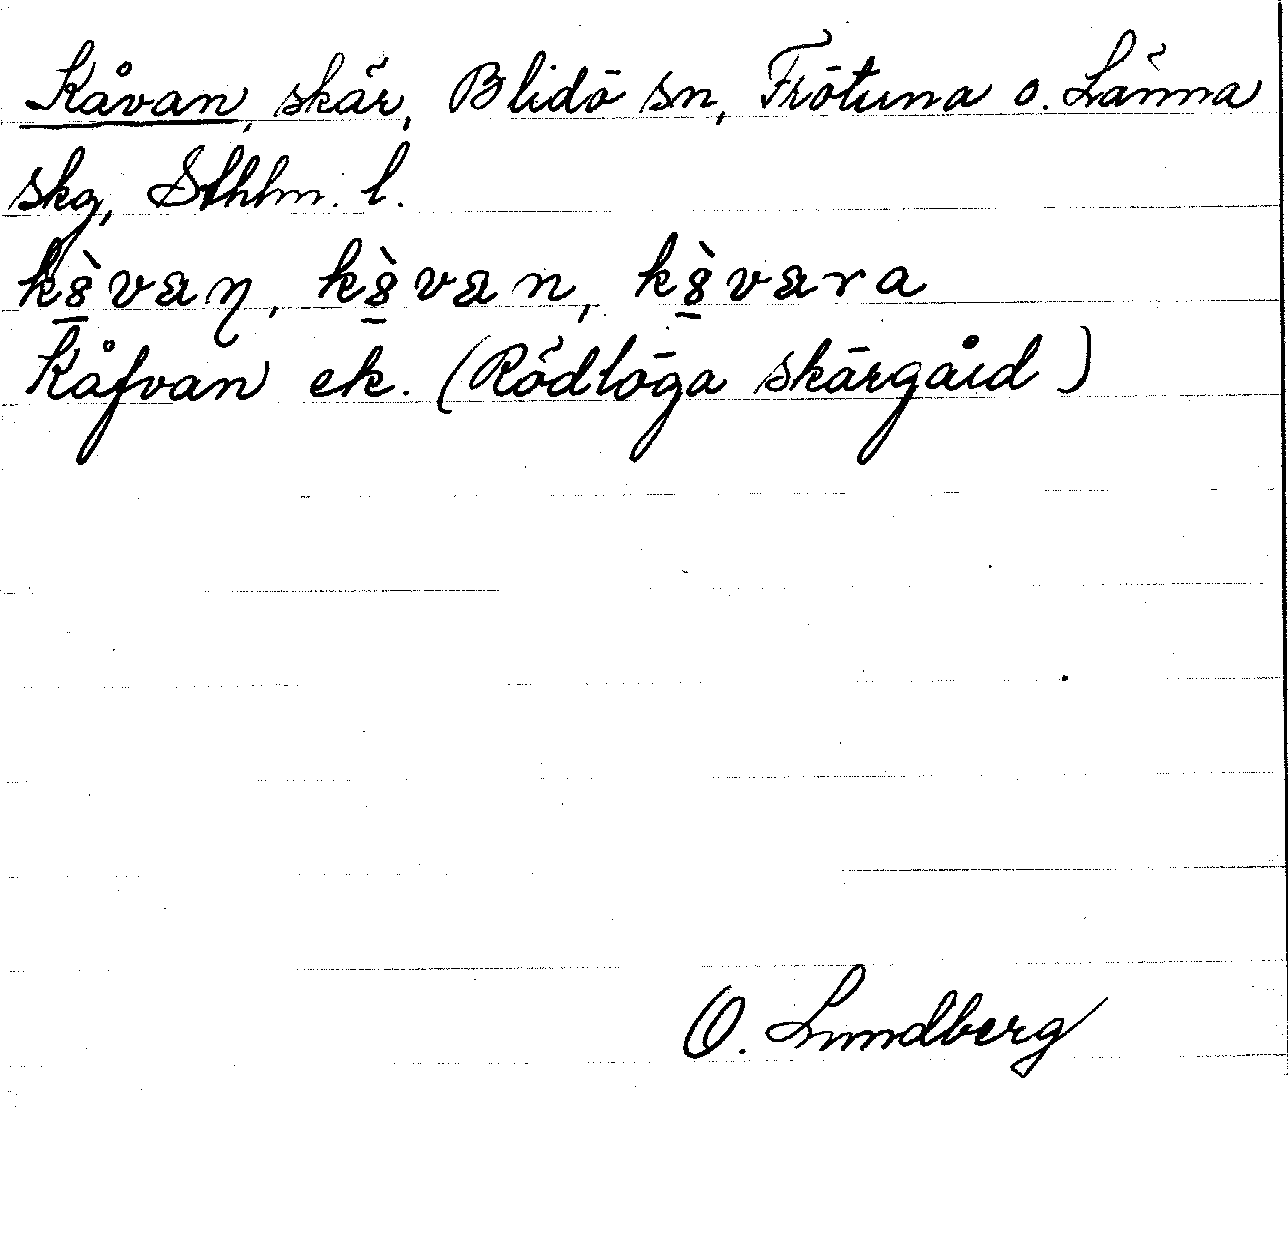 Kåvan, skär, Blidö sn, Frötuna o. Länna
skg, Sthlm. l.
Kåfvan ek. (Rödlöga skärgård)
O. Lundberg